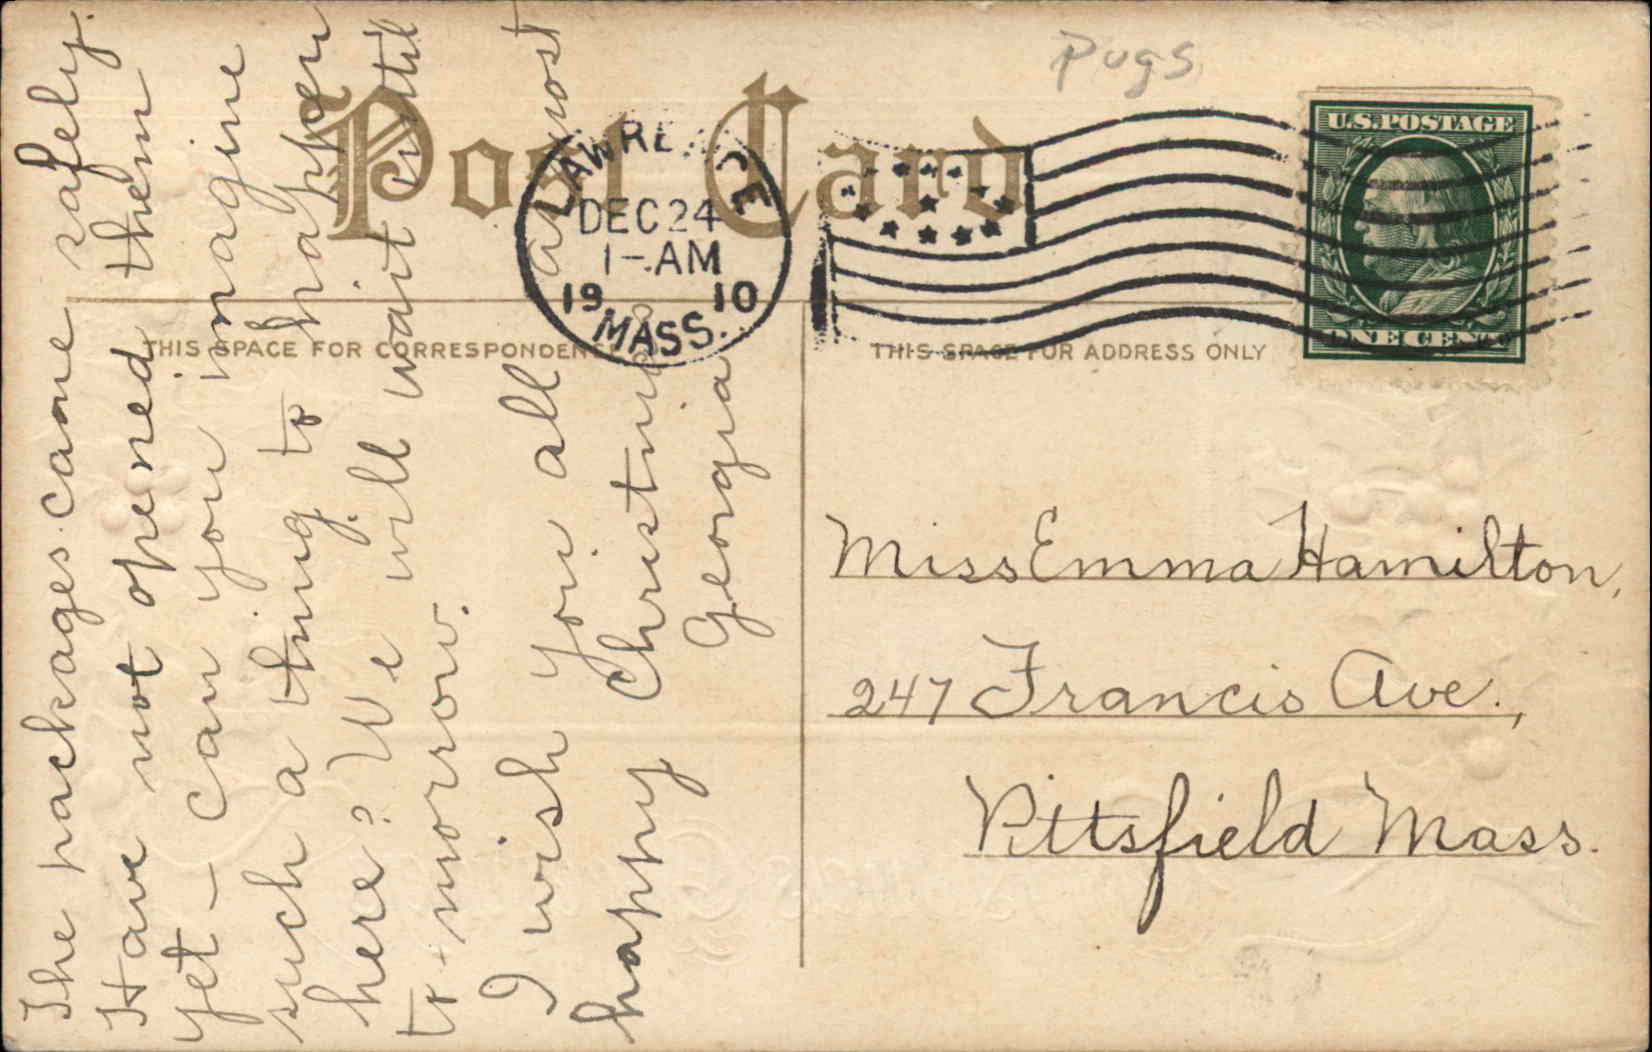 Pugs
Post Card
LAWRENCE
DEC 24
1-AM
1910
MASS.
U.S.POSTAGE
ONE CENT
THIS SPACE FOR CORRESPONDENCE
THIS SPACE FOR ADDRESS ONLY
The packages came safely.
Have not opened them
yet - Can you imagine
such a thing to happen
here? We will wait until
to-morrow.
I wish you all a most
happy Christmas
Georgia
Miss Emma Hamilton,
247 Francis Ave.,
Pittsfield Mass.